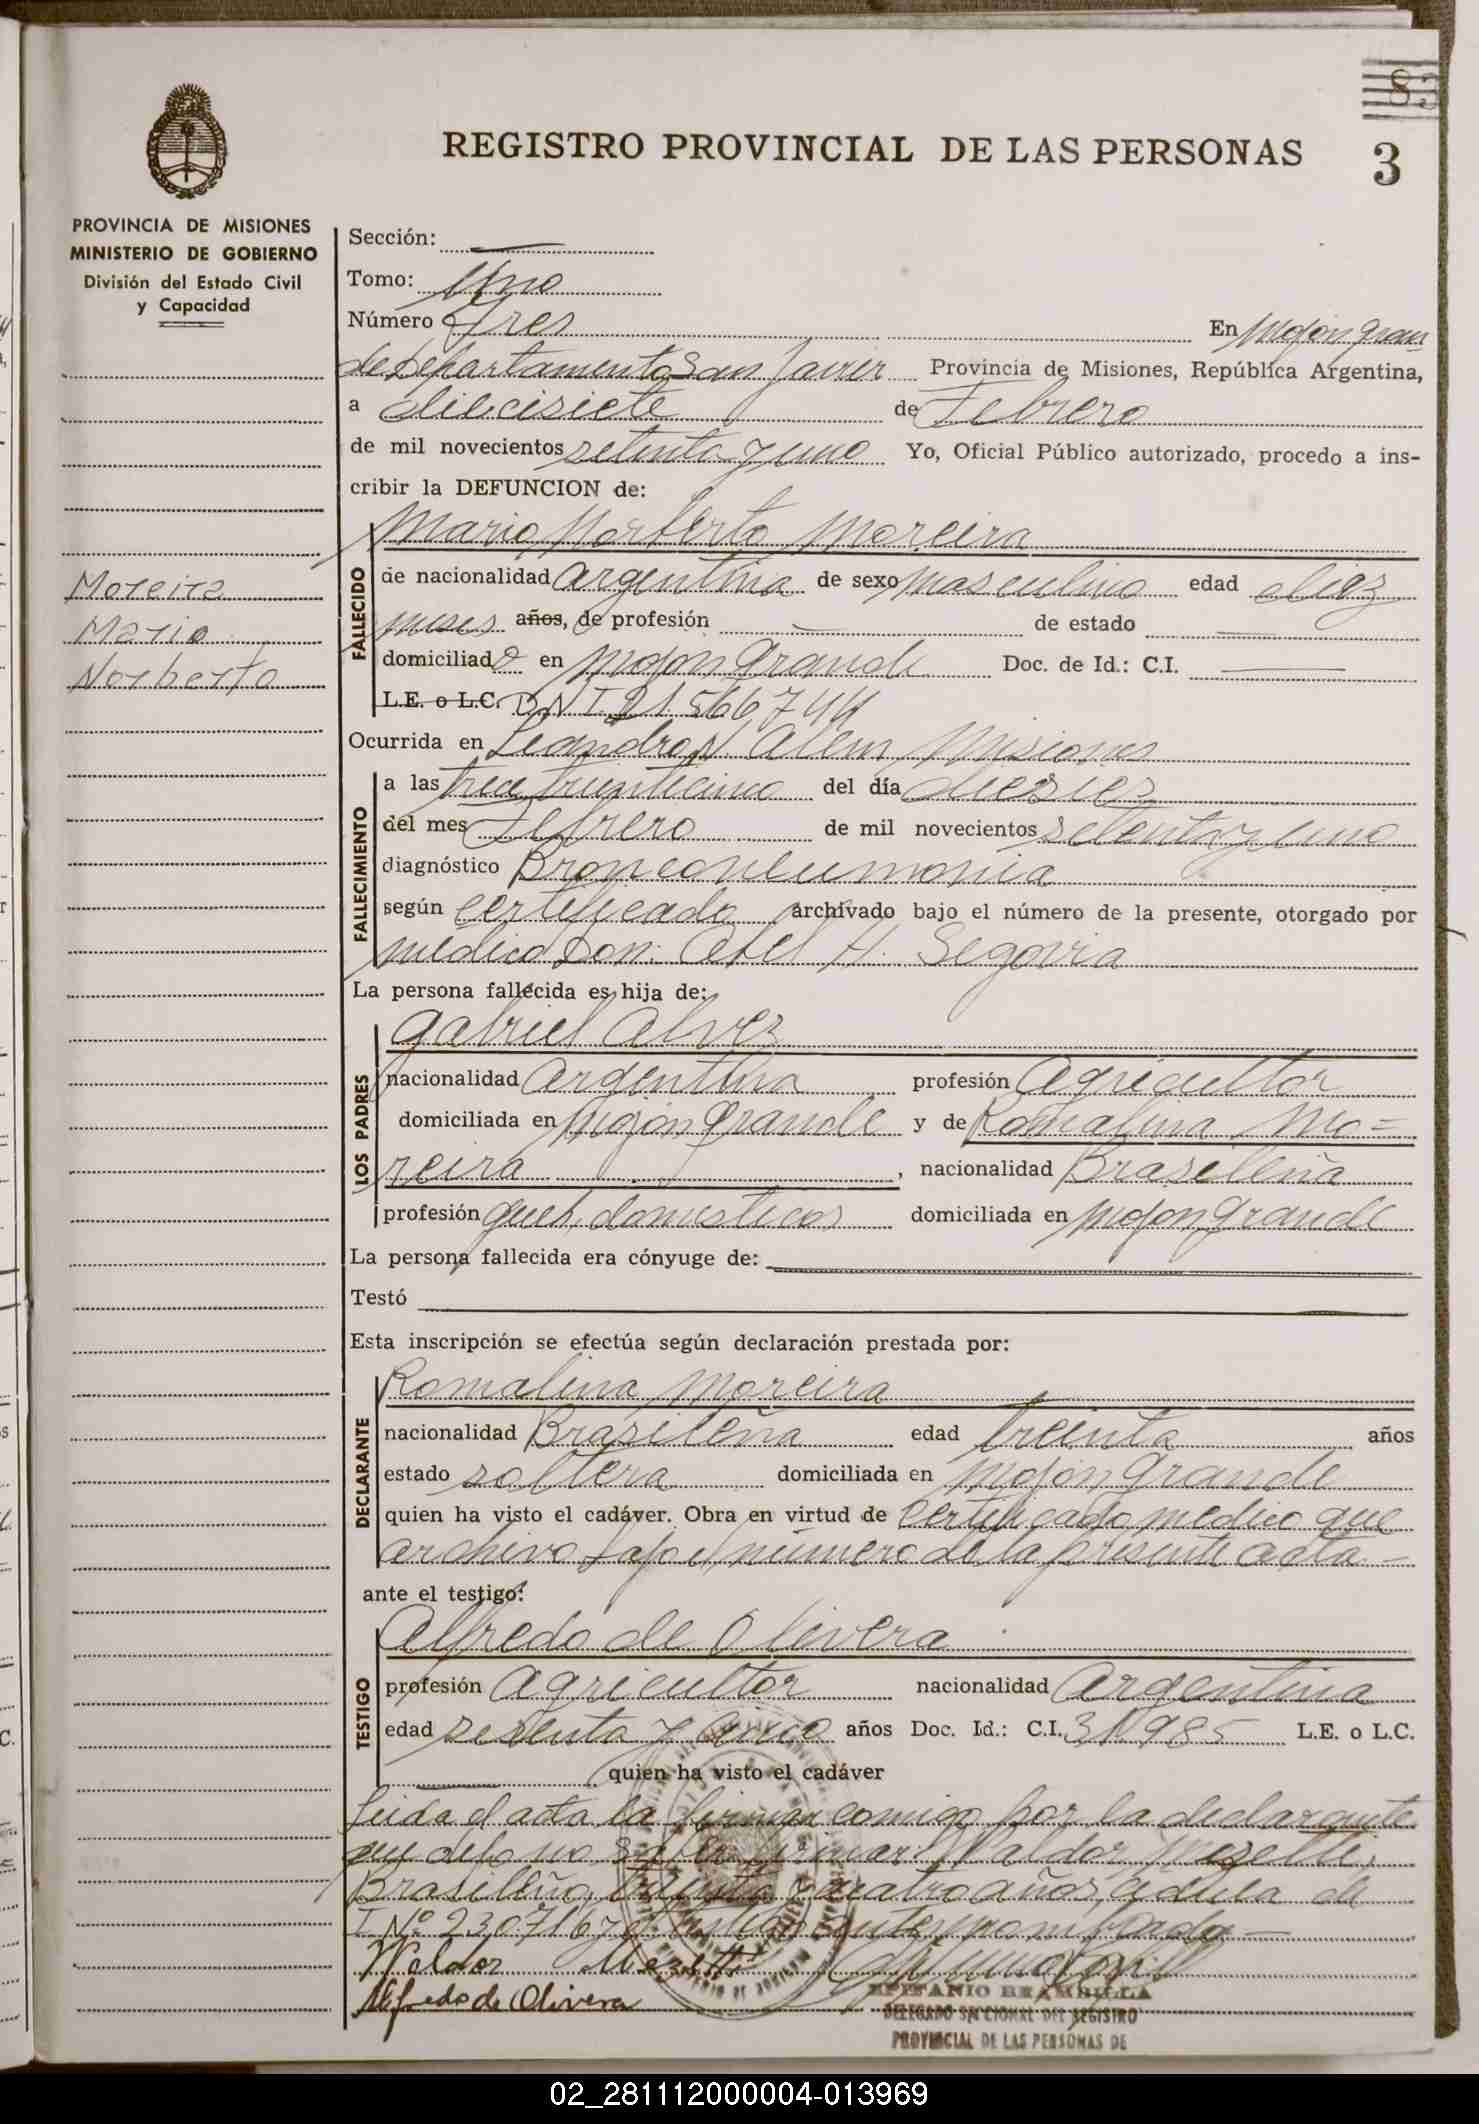 83
REGISTRO PROVINCIAL DE LAS PERSONAS 3
PROVINCIA DE MISIONES
MINISTERIO DE GOBIERNO
División del Estado Civil
y Capacidad
Moreira
Mario
Norberto
Sección: —
Tomo: Uno
Número Tres En Mojon Gran
de Departamento San Javier Provincia de Misiones, República Argentina,
a diecisiete de Febrero
de mil novecientos setenta y uno Yo, Oficial Público autorizado, procedo a ins-
cribir la DEFUNCION de:
Mario Norberto Moreira
FALLECIDO
de nacionalidad Argentina de sexo masculino edad diez
meses años, de profesión — de estado —
domiciliado en Mojon Grande Doc. de Id.: C.I. —
L.E. o L.C. D N I 21.566744
Ocurrida en Leandro N. Alem Misiones
FALLECIMIENTO
a las trece del día
del mes Febrero de mil novecientos setenta y uno
diagnóstico Bronconeumonia
según certificado archivado bajo el número de la presente, otorgado por
medico Don: Abel H. Segovia
La persona fallecida es hija de:
LOS PADRES
Gabriel Alvez
nacionalidad Argentina profesión Agricultor
domiciliada en Mojon Grande y de Romalina Mo=
reira, nacionalidad Brasileña
profesión queh. domesticos domiciliada en Mojon Grande
La persona fallecida era cónyuge de: —
Testó —
Esta inscripción se efectúa según declaración prestada por:
DECLARANTE
Romalina Moreira
nacionalidad Brasileña edad treinta años
estado soltera domiciliada en Mojon Grande
quien ha visto el cadáver. Obra en virtud de certificado medico que
archivo bajo el número de la presente acta —
ante el testigo:
TESTIGO
Alfredo de Olivera
profesión Agricultor nacionalidad Argentina
edad sesenta y cinco años Doc. Id.: C.I. 31985 L.E. o L.C.
— quien ha visto el cadáver
Leida el acta la firman comigo por la declarante
que dijo no saber firmar Waldor Mezetti,
Brasileño, treinta y cuatro años, cedula de
I Nº 230716 y el testigo antes nombrado —
Waldor Mezetti
Alfredo de Olivera
EPIFANIO BRAMBILLA
DELEGADO SECCIONAL DEL REGISTRO
PROVINCIAL DE LAS PERSONAS DE
02_281112000004-013969